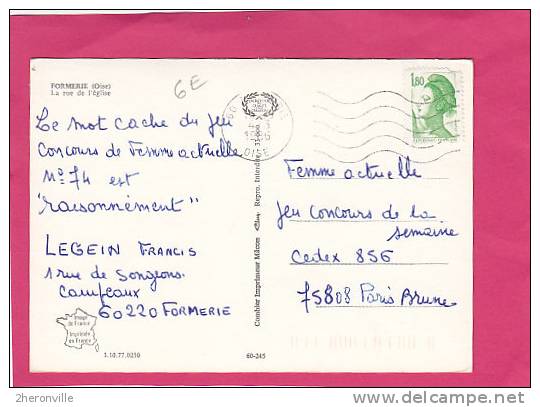 FORMERIE (Oise)
La rue de l'église
6E
1,80
Le mot cache du jeu
concours de Femme actuelle
N° 74 est
"raisonnément"
LEGEIN FRANCIS
1 rue de Songeons
Campeaux
60220 FORMERIE
Image
de France
Imprimée
en France
1.10.77.0210
Combier Imprimeur Mâcon
Repro. Interdite
60-245
OISE
Femme actuelle
Jeu concours de la
semaine
Cedex 856
75808 Paris Brune
2heronville
DELCAMPE.NET